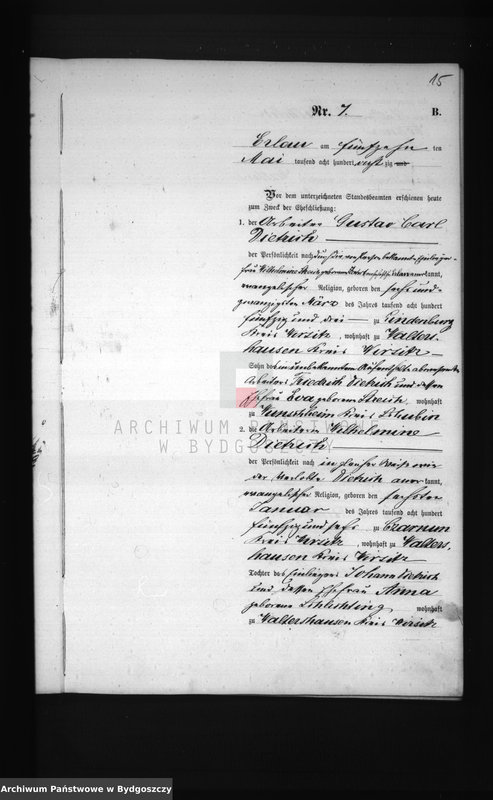 15
Nr. 7. B.
Erlau am fünfzehn ten
Mai tausend acht hundert acht zig und
Vor dem unterzeichneten Standesbeamten erschienen heute
zum Zweck der Eheschließung:
1. der Arbeiter Gustav Carl
Dietrich
der Persönlichkeit nach
kannt,
evangelischer Religion, geboren den sechs und
zwanzigsten März des Jahres tausend acht hundert
fünfzig und drei zu Lindenburg
Kreis Wirsitz, wohnhaft zu Walters-
hausen Kreis Wirsitz
Sohn des
Arbeiters Friedrich Dietrich und dessen
Ehefrau Eva geborene wohnhaft
zu Kreis Schubin
2. die Arbeiterin Wilhelmine
Dietrich
der Persönlichkeit nach in gleicher Weise wie
der Verlobte Dietrich aner kannt,
evangelischer Religion, geboren den sechsten
Januar des Jahres tausend acht hundert
fünfzig und sechs zu Czarnun
Kreis Wirsitz, wohnhaft zu Walters-
hausen Kreis Wirsitz
Tochter des Einliegers Johann Dietrich
und dessen Ehefrau Anna
geborene Schlichting wohnhaft
zu Waltershausen Kreis Wirsitz
ARCHIWUM PAŃSTWOWE
W BYDGOSZCZY
Archiwum Państwowe w Bydgoszczy